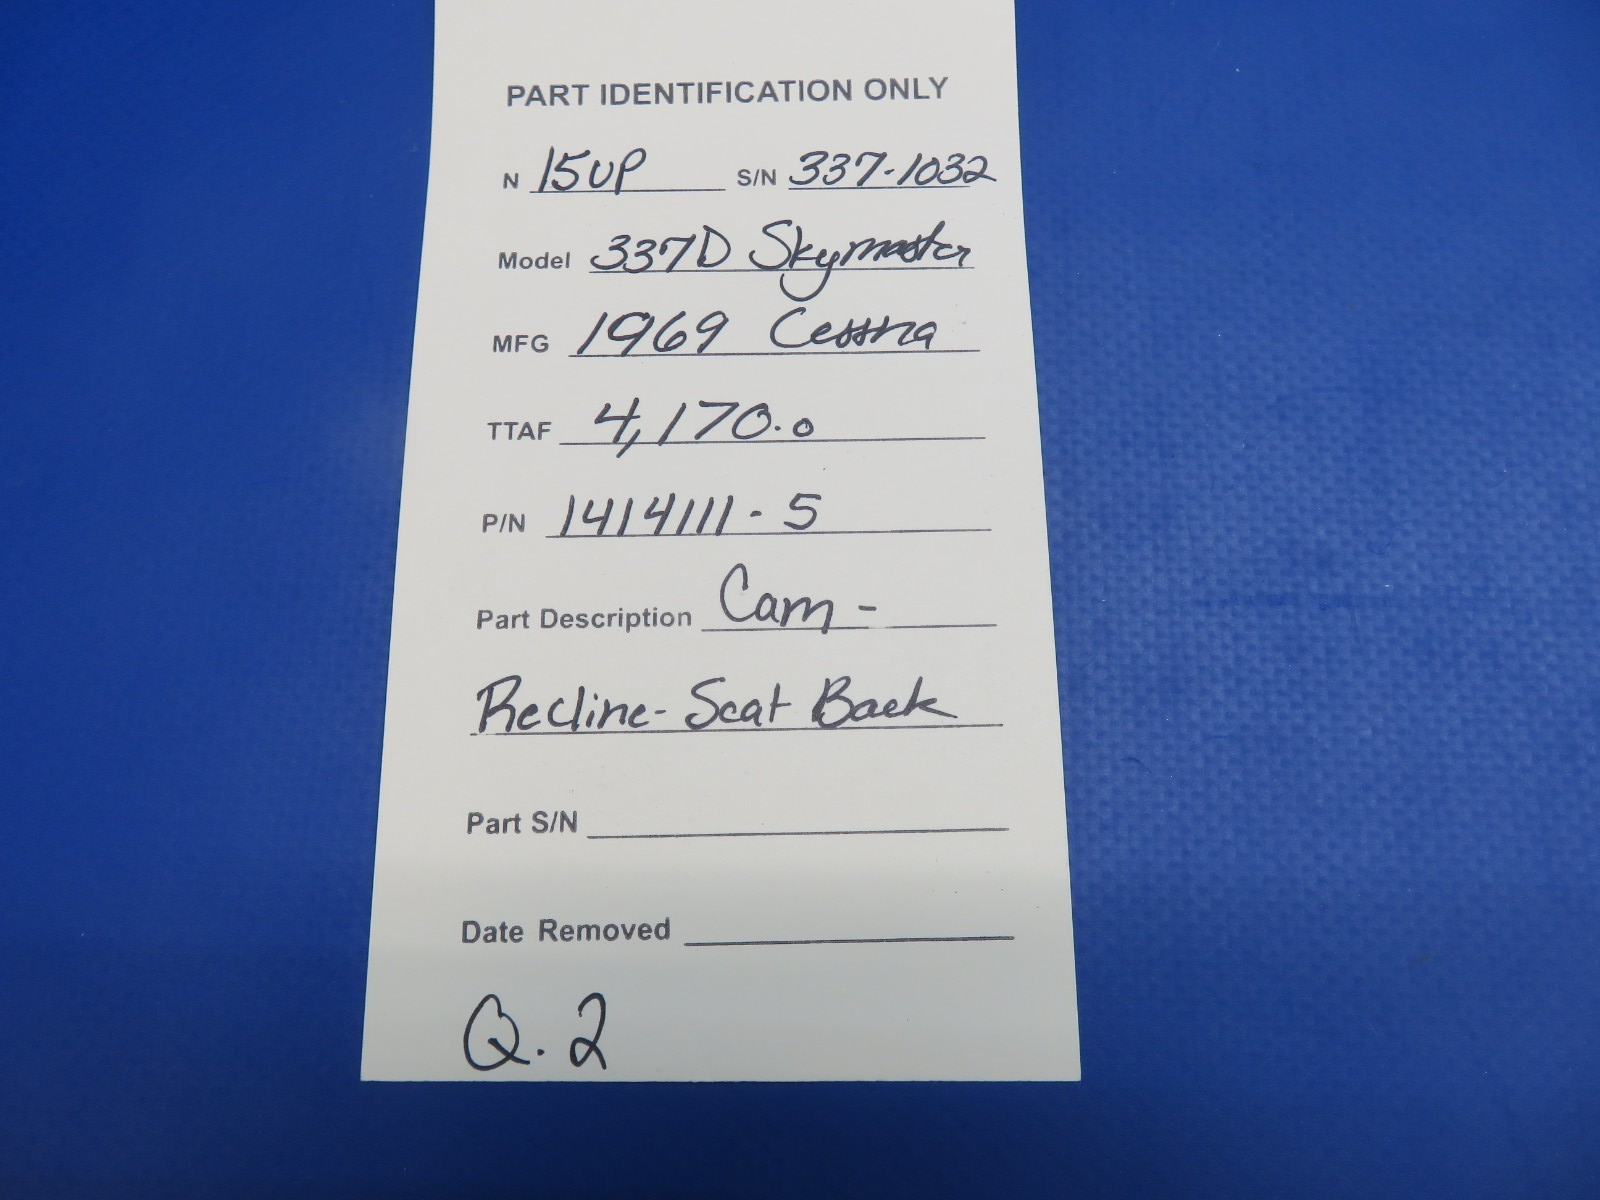 PART IDENTIFICATION ONLY
N 15UP S/N 337-1032
Model 337D Skymaster
MFG 1969 Cessna
TTAF 4,170.0
P/N 1414111-5
Part Description Cam -
Recline-Seat Back
Part S/N
Date Removed
Q.2